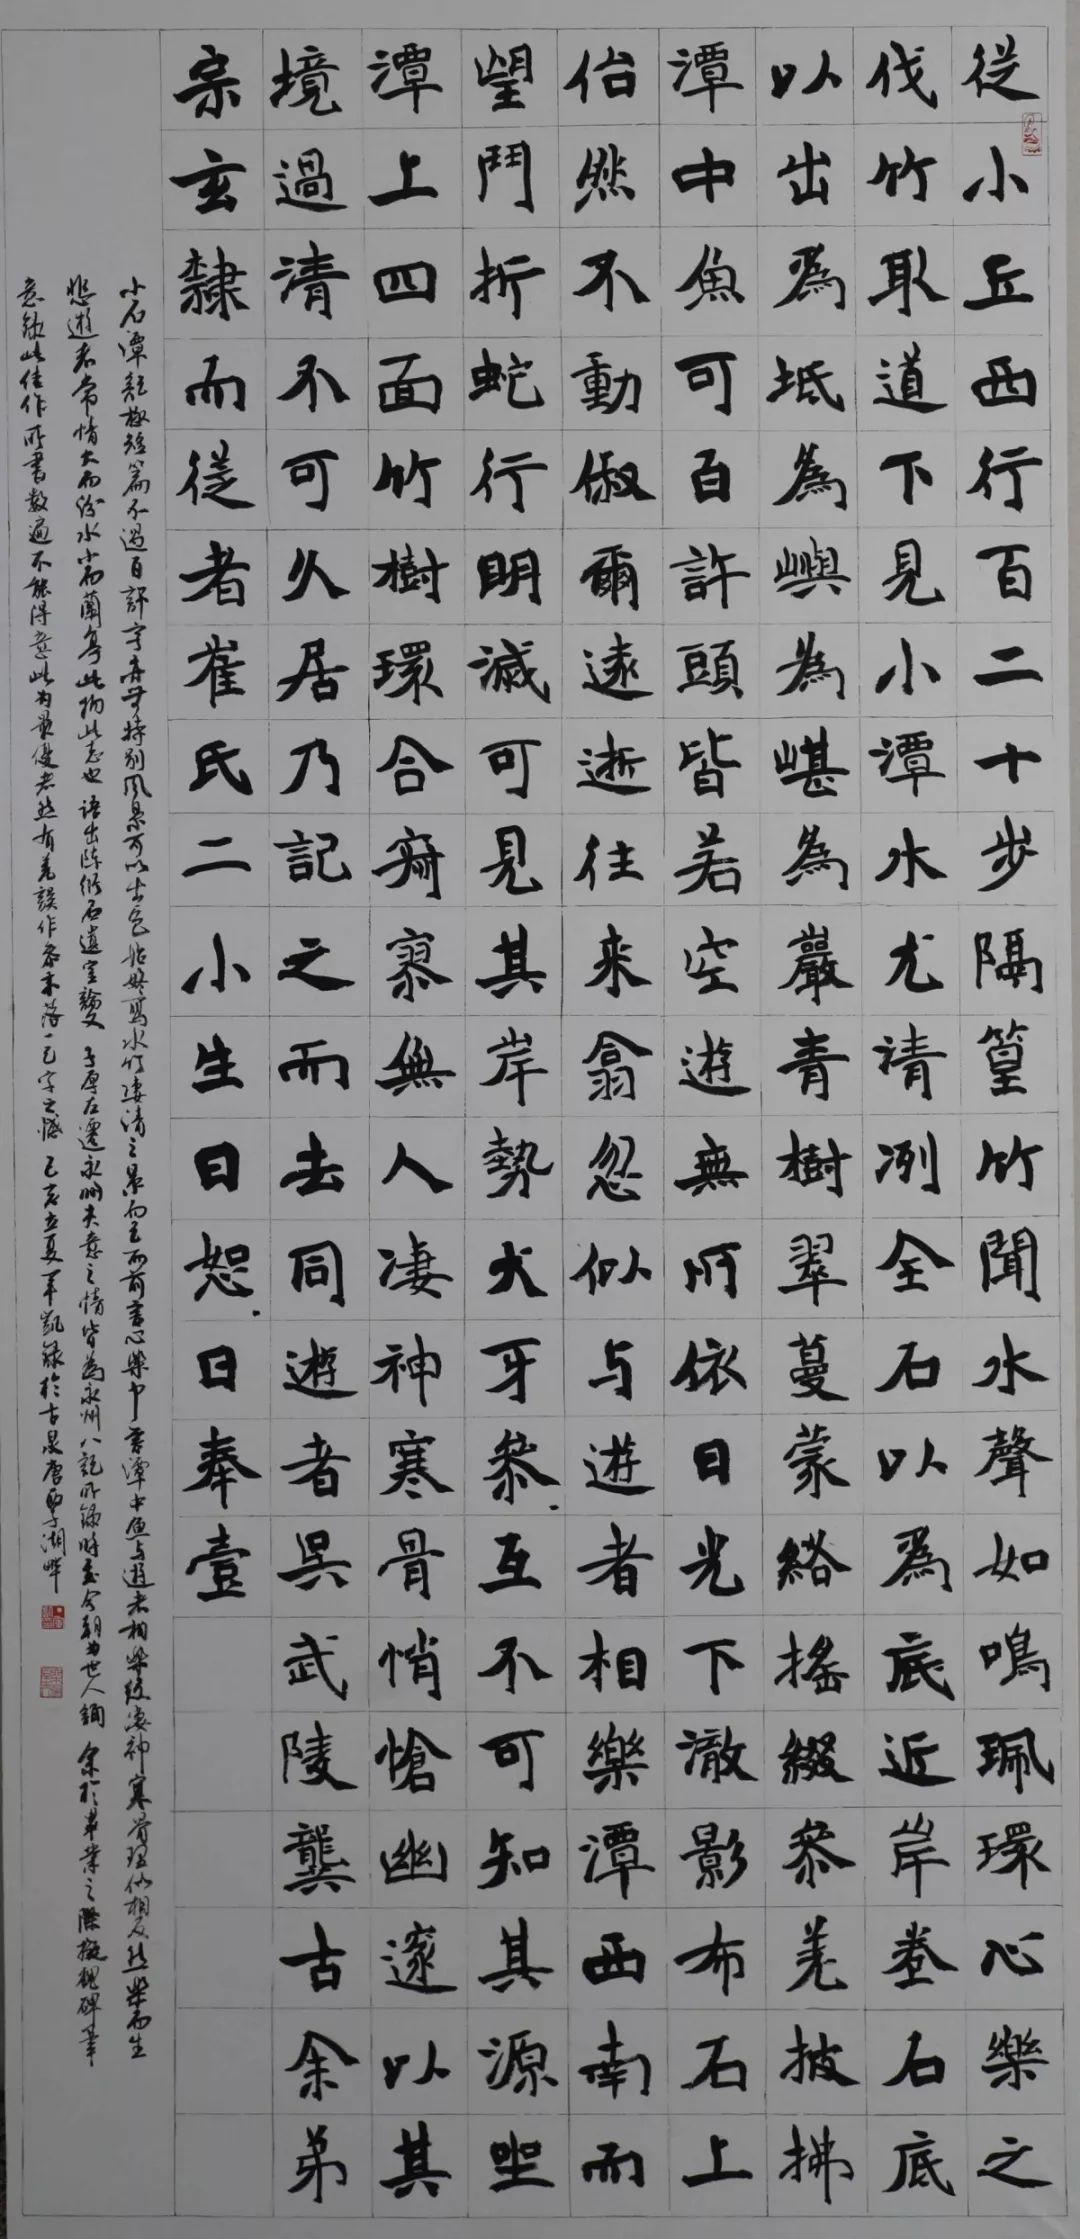 從小丘西行百二十步隔篁竹聞水聲如鳴珮環心樂之
伐竹取道下見小潭水尤清冽全石以為底近岸卷石底
以出為坻為嶼為嵁為巖青樹翠蔓蒙絡搖綴參差披拂
潭中魚可百許頭皆若空遊無所依日光下澈影布石上
佁然不動俶爾遠逝往來翕忽似与遊者相樂潭西南而
望鬥折蛇行明滅可見其岸勢犬牙參互不可知其源坐
潭上四面竹樹環合寂寥無人凄神寒骨悄愴幽邃以其
境過清不可久居乃記之而去同遊者吳武陵龔古余弟
宗玄隸而從者崔氏二小生曰恕曰奉壹
小石潭記極短篇不過百許字亦無特別風景可以出色始終寫水竹凄清之景而已而前言心樂中言潭中魚与遊者相樂後凄神寒骨理似相反然樂而生
悲遊者常情大而汾水小而蘭亭此物此志也語出陳衍石遺室論文子厚左遷永州失意之情皆為永州八記所錄時至今朝為世人 余於畢業之際擬魏碑筆
意錄此佳作所書數遍不能得意此為最優者然有差誤作參末落一已字之憾己亥立夏軍凱錄於古泉唐 湖畔